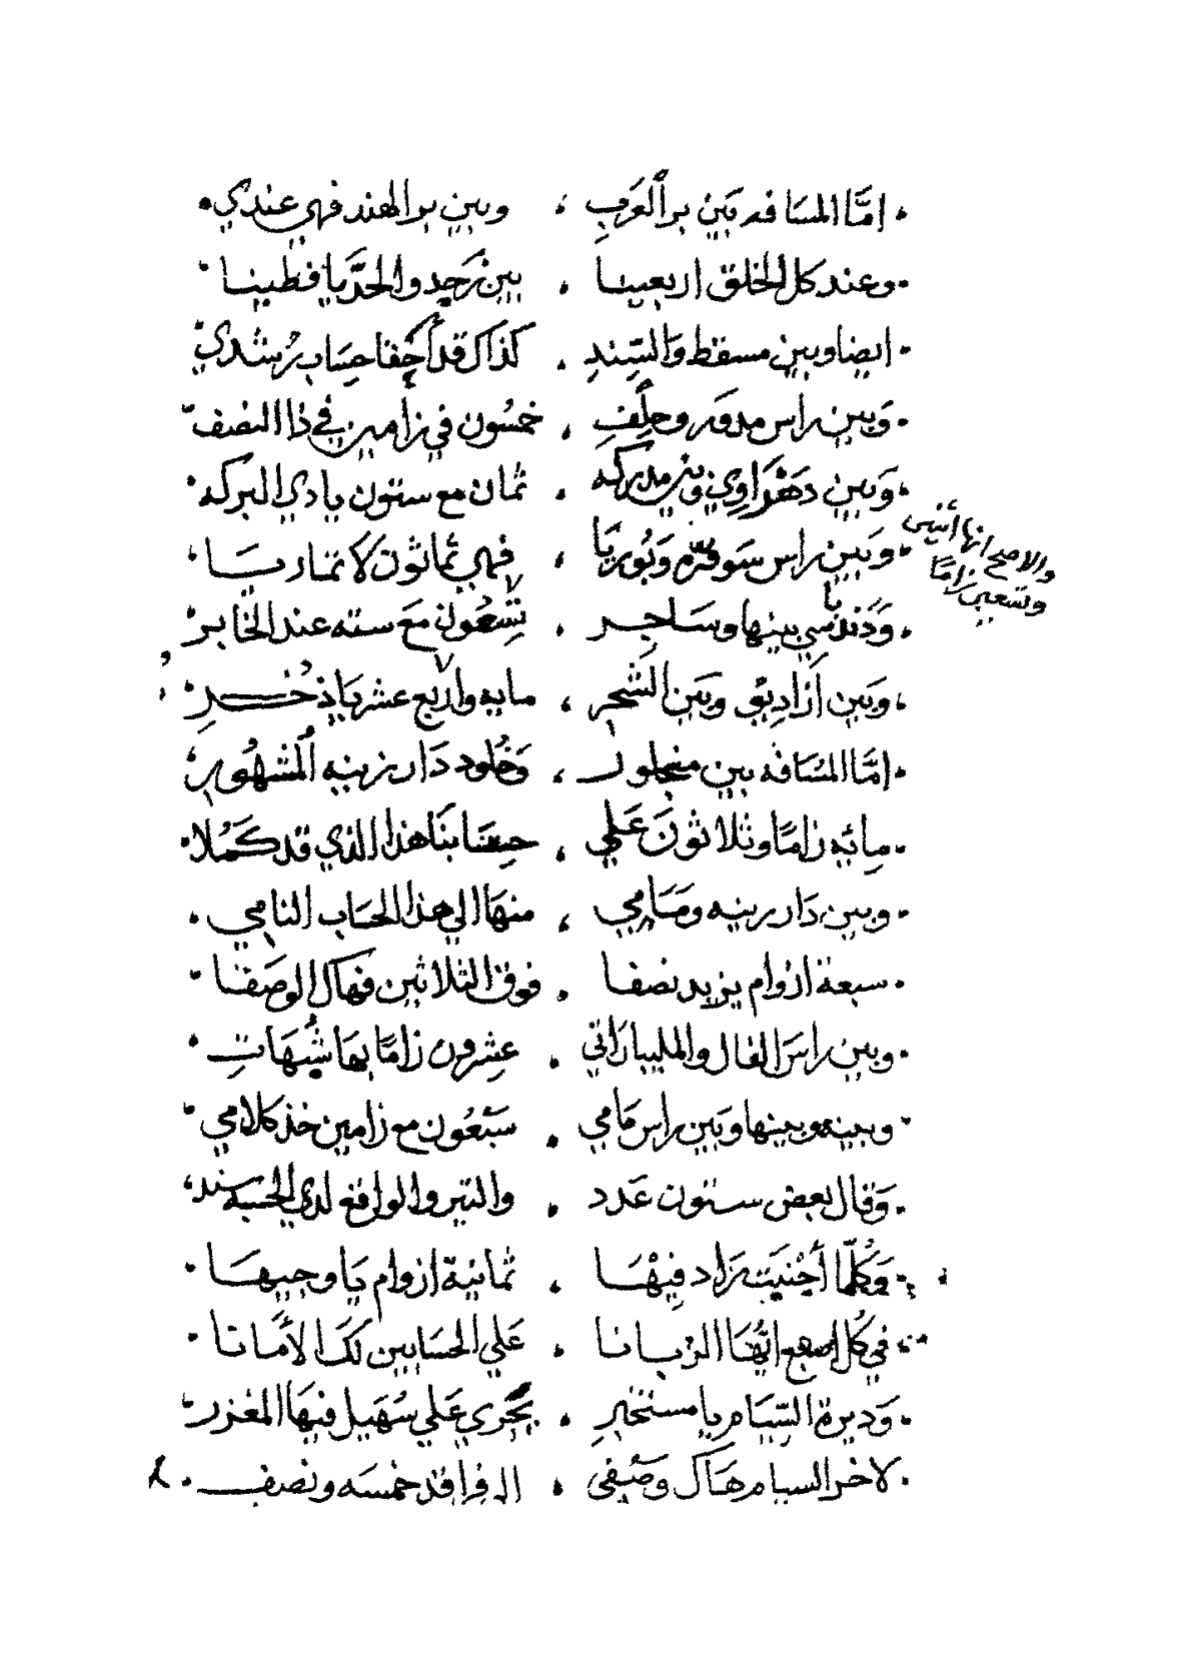 امَّا المسَافه بَين بر العَربِ ، وبين بر الهند فهي عندي
وعند كل الخلق اربعينا ، بين زجد والحدّ يا فطينا
ايضا وبين مسقط والسِّندِ ، كذاك قد حساب رُشدي
وَبين راس مدور ، خمسُون في زامين في ذا النصف
وَبين دَهْراوِي ، ثمان مع ستون يا ذي البركه
وَبين راس وَبُوريَا ، فهي ثمانُون لا تماريَا
والاصح انها اثنين وتسعين زامًا
بينها وسَاجِر ، تسعُون مَع سته عند الخابر
وَبين وبَين الشحر ، مايه واربع عشر يَا ذخرِ
امَّا المسَافه بين منجلور ، دَار زينه المشهُور
مِائيه زامًا وثلاثونَ عَلي ، حسابنَا هذا الذي قد كَمُلا
وبين دَار زينه ومَامِي ، منهَا الي هذا الحسَاب النامي
سبعة ازوام يزيد نصفا ، فوق الثلاثين فهاك الوصَفا
وبين راسَ الفال والمليبارَاتي ، عشرون زامًا بهَا
وبينه وبينها وبَين راس مَامي ، سَبعُون مع زامين خذ كلامي
وَقال بعض ستون عَدد ، والتير والواقع لدي
وَكلّمَا أجْنيَت تزاد فِيْهَا ، ثمانية ازوام يَا وجيهَا
في كُل اصبع ايُّهَا الربانا ، عَلي الحسَابين لكَ الأمَانا
وَديرة السِّيَام يا مستخبرِ ، يجري عَلي سُهيل فيهَا المغزر
لاخر السيام هَاك وصَفي ، الفراقد خمسَه ونصف